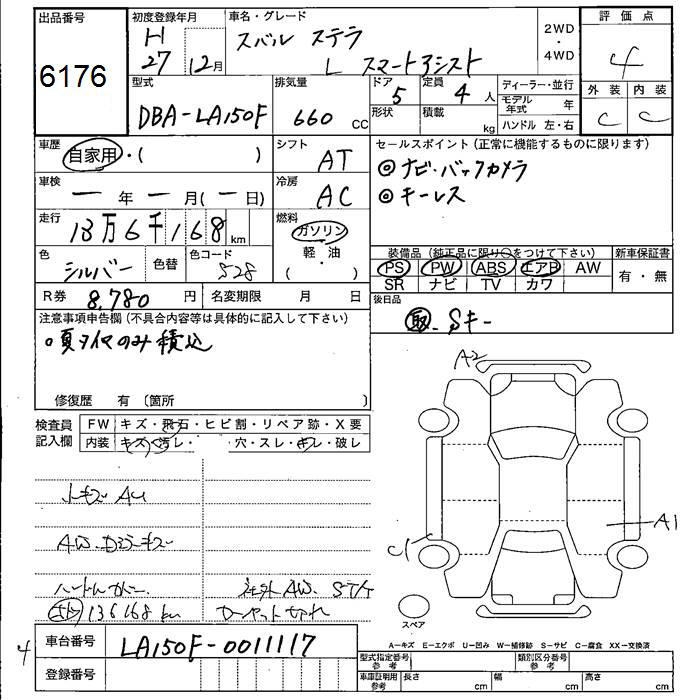 出品番号
6176
初度登録年月
H
27 12月
車名・グレード
スバル ステラ
L スマートアシスト
2WD
・
4WD
評価点
4
外装 内装
C C
型式
DBA-LA150F
排気量
660 CC
ドア 5
形状
定員 4 人
積載 kg
ディーラー・並行
モデル年式 年
ハンドル 左・右
車歴
自家用・( )
シフト
AT
セールスポイント(正常に機能するものに限ります)
◎ナビ・バックカメラ
◎キーレス
車検
一年一月(一日)
冷房
AC
走行
13万6千168km
燃料
ガソリン
軽・油
( ・ )
色
シルバー
色替
色コード
S28
装備品(純正品に限り○をつけて下さい)
PS PW ABS エアB AW
SR ナビ TV カワ
新車保証書
有・無
R券 8,780 円
名変期限 月 日
後日品
取 Sキー
注意事項申告欄(不具合内容等は具体的に記入して下さい)
○夏タイヤのみ積込
修復歴 有〔箇所 〕
検査員
記入欄
FW キズ・飛石・ヒビ割・リペア跡・X要
内装 キズ・汚レ・ 穴・スレ・キレ・破レ
A2
A1
C1
スペア
小キズ AU
AW.
136168 km
社外AW.
車台番号 LA150F-0011117
4
登録番号
A=キズ E=エクボ U=凹み W=補修跡 S=サビ C=腐食 XX=交換済
型式指定番号 参考
類別区分番号 参考
車庫証明用 参考
長さ cm
幅 cm
高さ cm